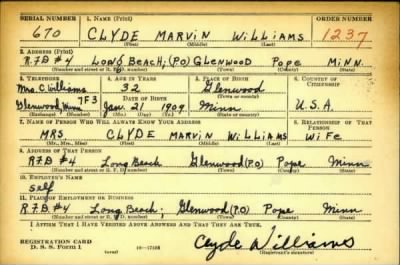 SERIAL NUMBER 1. NAME (Print) ORDER NUMBER
670 CLYDE MARVIN WILLIAMS 1237
(First) (Middle) (Last)
2. ADDRESS (Print)
R.F.D #4 LONG BEACH; (PO) GLENWOOD POPE MINN.
(Number and street or R. F. D. number) (Town) (County) (State)
3. TELEPHONE 4. AGE IN YEARS 5. PLACE OF BIRTH 6. COUNTRY OF CITIZENSHIP
Mrs. C. Williams 32 Glenwood
(Town or county)
7F3 DATE OF BIRTH
Glenwood, Minn Jan. 21 1909 Minn U.S.A.
(Exchange) (Number) (Mo.) (Day) (Yr.) (State or country)
7. NAME OF PERSON WHO WILL ALWAYS KNOW YOUR ADDRESS 8. RELATIONSHIP OF THAT PERSON
MRS CLYDE MARVIN WILLIAMS WIFE
(Mr., Mrs., Miss) (First) (Middle) (Last)
9. ADDRESS OF THAT PERSON
R.F.D #4 Long Beach Glenwood (P.O) Pope Minn
(Number and street or R. F. D. number) (Town) (County) (State)
10. EMPLOYER'S NAME
self
11. PLACE OF EMPLOYMENT OR BUSINESS
R.F.D #4 Long Beach; Glenwood (P.O) Pope Minn
(Number and street or R. F. D. number) (Town) (County) (State)
I AFFIRM THAT I HAVE VERIFIED ABOVE ANSWERS AND THAT THEY ARE TRUE.
REGISTRATION CARD
D. S. S. Form 1 16—17105 Clyde Williams
(Registrant's signature)